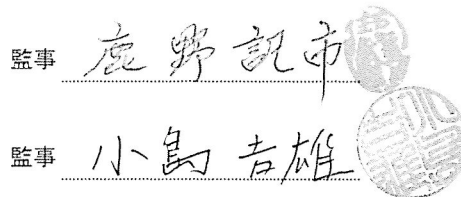 監事 鹿野 訳市
監事 小島 吉雄